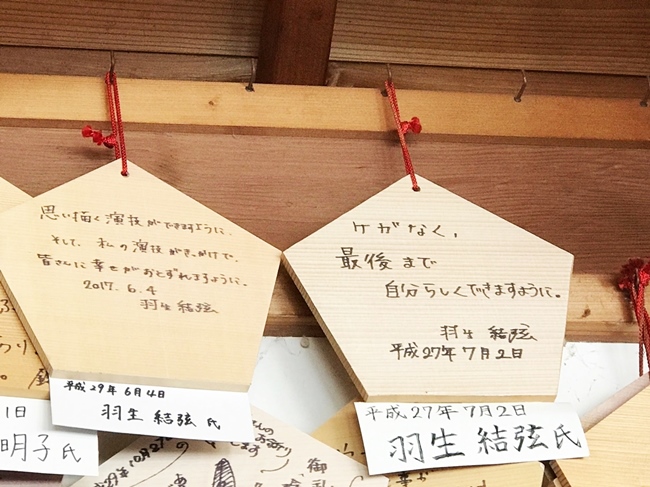 思い描く演技ができますように。
そして、私の演技がきっかけで、
皆さんに幸せがおとずれますように。
2017.6.4
羽生結弦
平成29年6月4日
羽生結弦氏
ケガなく、
最後まで
自分らしくできますように。
羽生結弦
平成27年7月2日
平成27年7月2日
羽生結弦氏
1日
明子氏